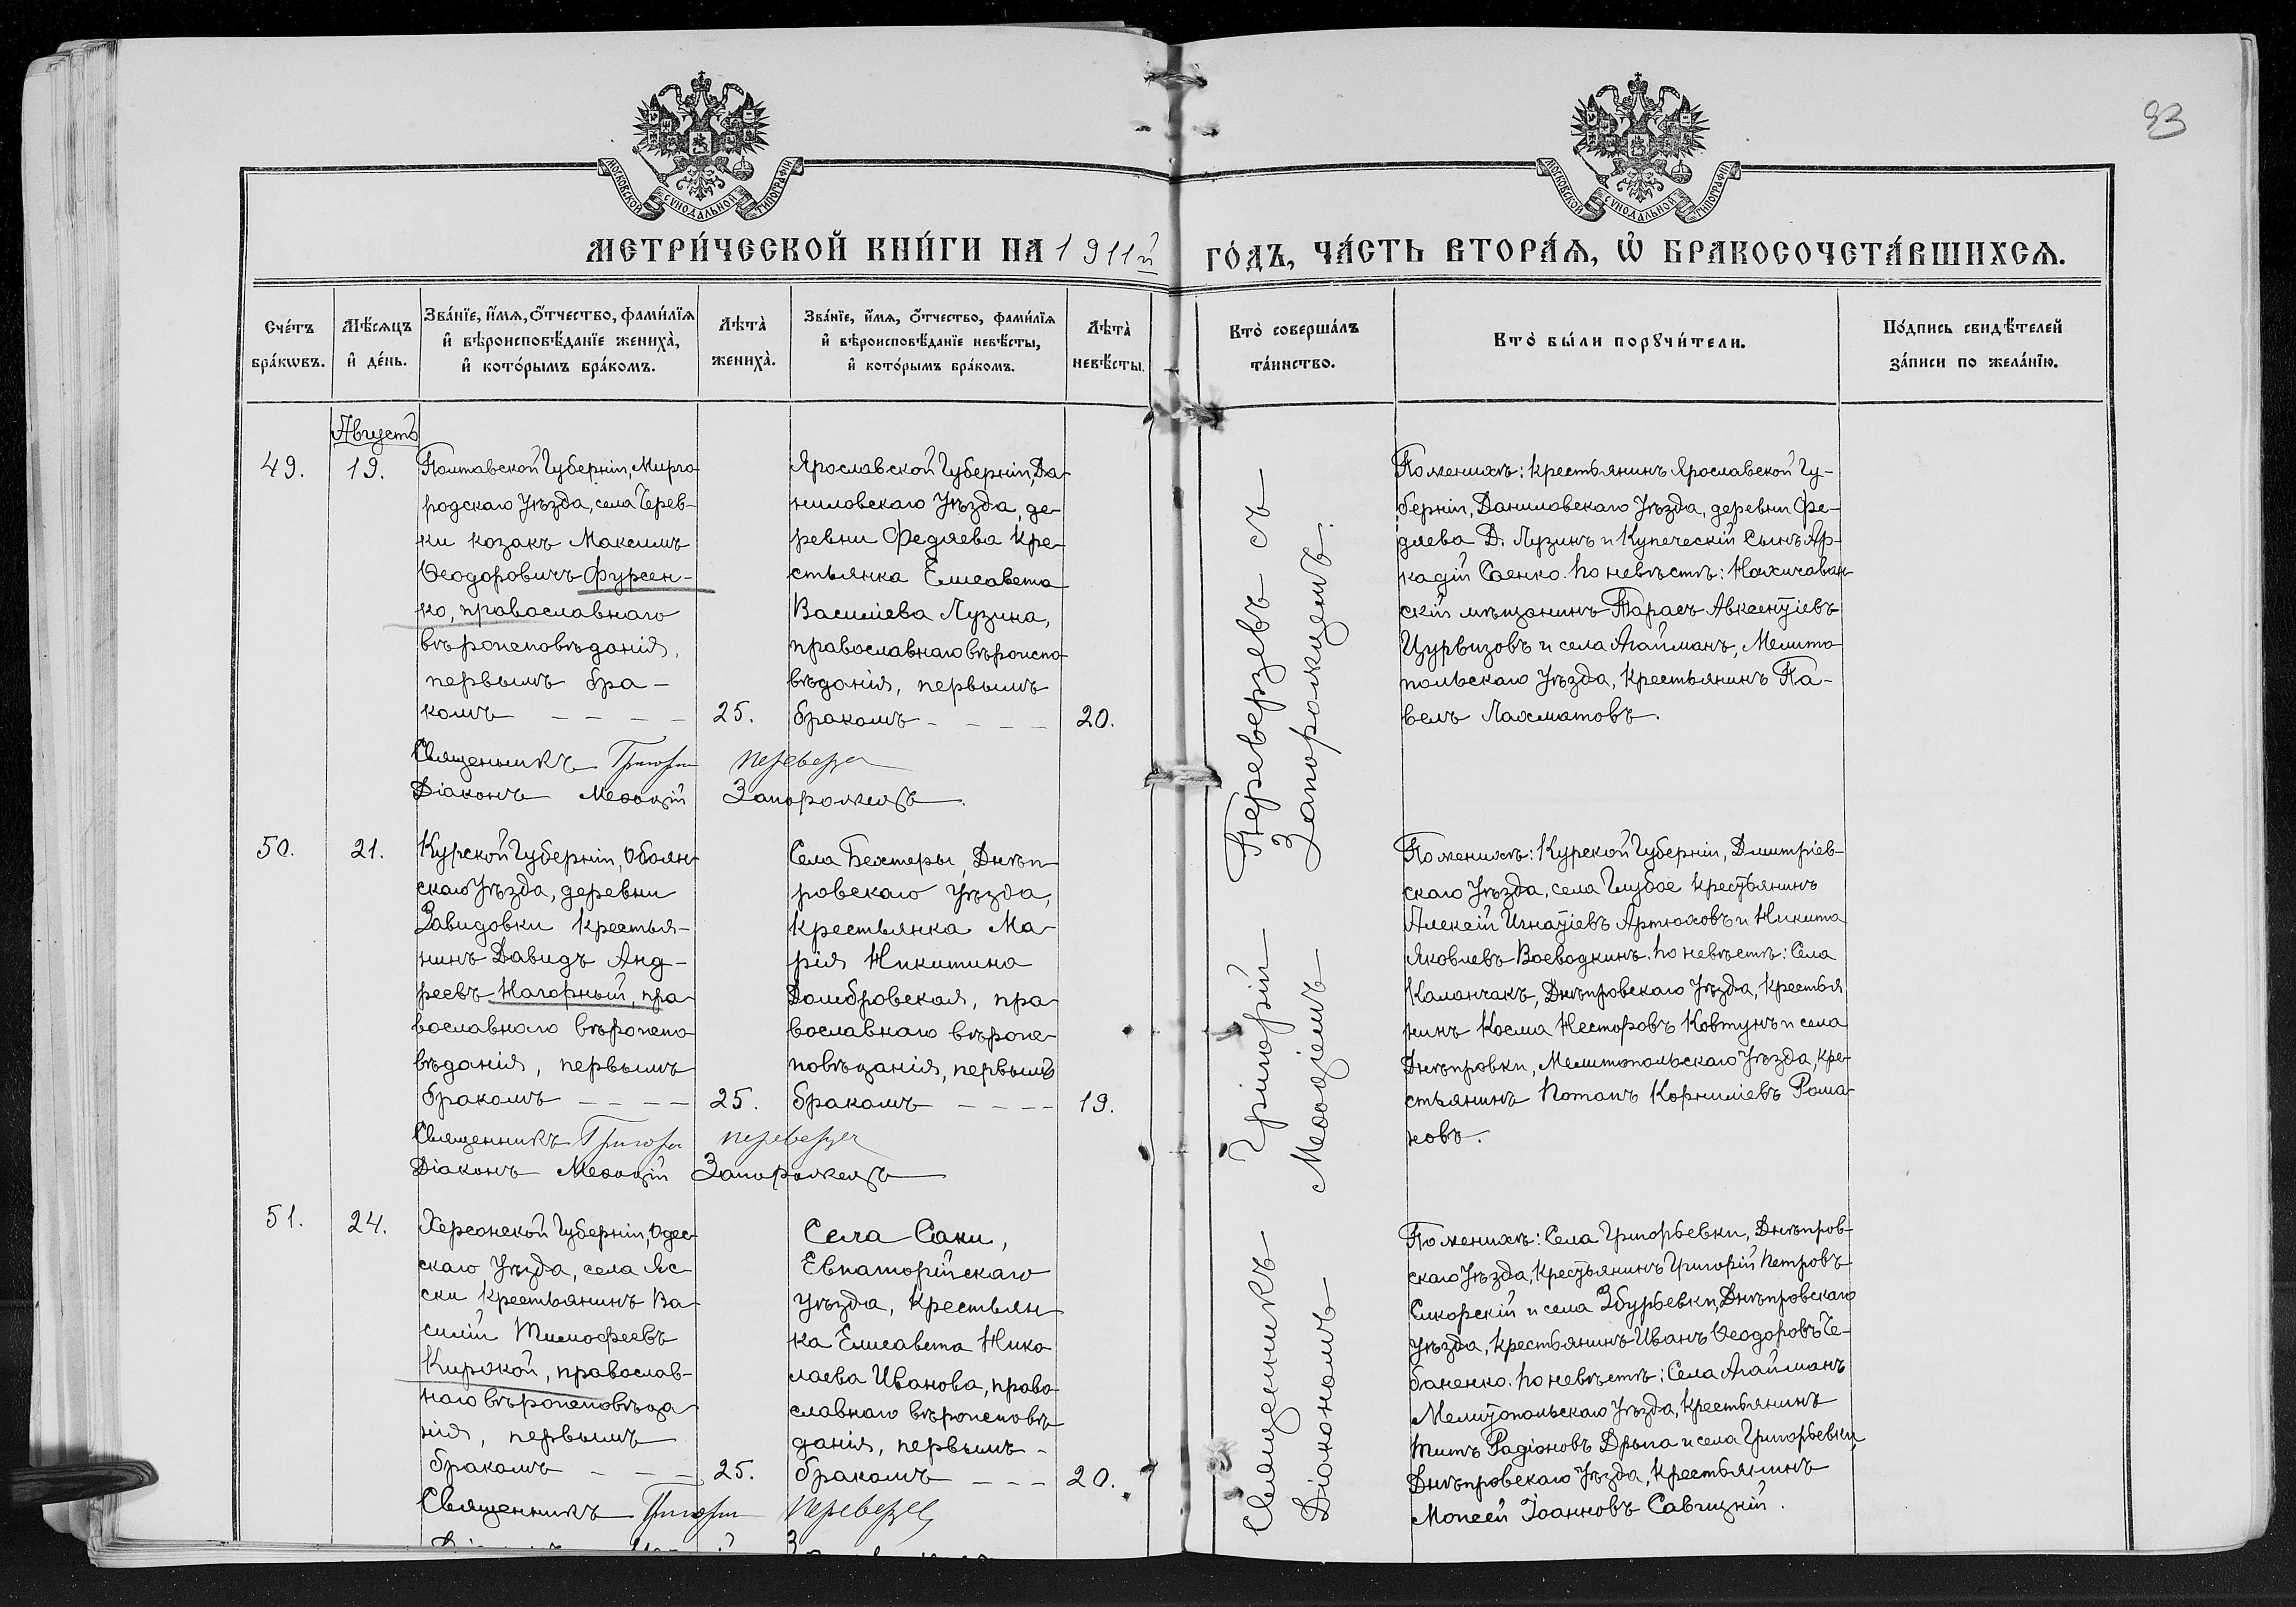 93
МОСКОВСКОЙ СУНОДАЛЬНОЙ ТИПОГРАФІИ
МОСКОВСКОЙ СУНОДАЛЬНОЙ ТИПОГРАФІИ
МЕТРИ́ЧЕСКОЙ КНИ́ГИ НА 1911й
ГО́ДЪ, ЧА́СТЬ ВТОРА́Ѧ, Ѡ҆ БРАКОСОЧЕТА́ВШИХСѦ.
Сче́тъ бра́кѡвъ.
Мѣ́сѧцъ и҆ де́нь.
Зва́нїе, и҆́мѧ, ѻ҆́тчество, фами́лїѧ
и҆ вѣроисповѣ́данїе жениха̀,
и҆ кото́рымъ бра́комъ.
Лѣта̀ жениха̀.
Зва́нїе, и҆́мѧ, ѻ҆́тчество, фами́лїѧ
и҆ вѣроисповѣ́данїе невѣ́сты,
и҆ кото́рымъ бра́комъ.
Лѣта̀ невѣ́сты.
Кто̀ соверша́лъ
та́инство.
Кто̀ бы́ли порꙋчи́тели.
По́дпись свидѣ́телей
за́писи по жела́нїю.
Августъ
49.
19.
Полтавской Губерніи, Мирго-
родскаго Уѣзда, села Черев-
ки козакъ Максимъ
Ѳеодоровичъ Фурсен-
ко, православнаго
вѣроисповѣданія,
первымъ бра-
комъ – – – –
25.
Ярославской Губерніи, Да-
ниловскаго Уѣзда, де-
ревни Федяева кре-
стьянка Елисавета
Василіева Лузина,
православнаго вѣроиспо-
вѣданія, первымъ
бракомъ – – – –
20.
Священникъ Григорій Переверзев
Діаконъ Меѳодій Запорожецъ.
По женихѣ: крестьянинъ Ярославской Гу-
берніи, Даниловскаго Уѣзда, деревни Фе-
дяева Д. Лузинъ и Купеческій Сынъ Ар-
кадій Саенко. по невѣстѣ: Нахичеван-
скій мѣщанинъ Тарасъ Авксентіевъ
Цурвизовъ и села Агайманъ, Мелито-
польскаго Уѣзда, Крестьянинъ Па-
велъ Лахматовъ.
50.
21.
Курской Губерніи, Обоян-
скаго Уѣзда, деревни
Завидовки крестья-
нинъ Давидъ Анд-
реевъ Нагорный, пра-
вославнаго вѣроиспо-
вѣданія, первымъ
бракомъ – – – –
25.
Села Бехтеры, Днѣп-
ровскаго Уѣзда,
крестьянка Ма-
рія Никитина
Домбровская, пра-
вославнаго вѣроис-
повѣданія, первымъ
бракомъ – – – –
19.
Священникъ Григорій Переверзев
Діаконъ Меѳодій Запорожецъ
По женихѣ: Курской Губерніи, Дмитріев-
скаго Уѣзда, села Глубое крестьянинъ
Алексій Игнатіевъ Артюховъ и Никита
Яковлевъ Воеводкинъ. по невѣстѣ: Села
Каланчакъ, Днѣпровскаго Уѣзда, крестья-
нинъ Косма Несторовъ Ковтунъ и села
Днѣпровки, Мелитопольскаго Уѣзда, кре-
стьянинъ Потапъ Корниліевъ Рома-
новъ.
51.
24.
Херсонской Губерніи, Одес-
скаго Уѣзда, села Яс-
ски крестьянинъ Ва-
силій Тимофеевъ
Кирокой, православ-
наго вѣроисповѣда-
нія, первымъ
бракомъ – – –
25.
Села Саки,
Евпаторійскаго
Уѣзда, крестьян-
ка Елисавета Нико-
лаева Иванова, право-
славнаго вѣроисповѣ-
данія, первымъ –
бракомъ – – –
20.
Священникъ Григорій Переверзев
По женихѣ: Села Григорьевки, Днѣпров-
скаго Уѣзда, крестьянинъ Григорій Петровъ
Сикорскій и села Збурьевки, Днѣпровскаго
Уѣзда, крестьянинъ Иванъ Ѳеодоровъ Че-
баненко. по невѣстѣ: Села Агайманъ
Мелитопольскаго Уѣзда, крестьянинъ
Титъ Радіоновъ Дрыга и села Григорьевки,
Днѣпровскаго Уѣзда, крестьянинъ
Моисей Іоанновъ Савицкій.
Священникъ Григорій Переверзевъ съ
Діакономъ Меѳодіемъ Запорожцемъ.